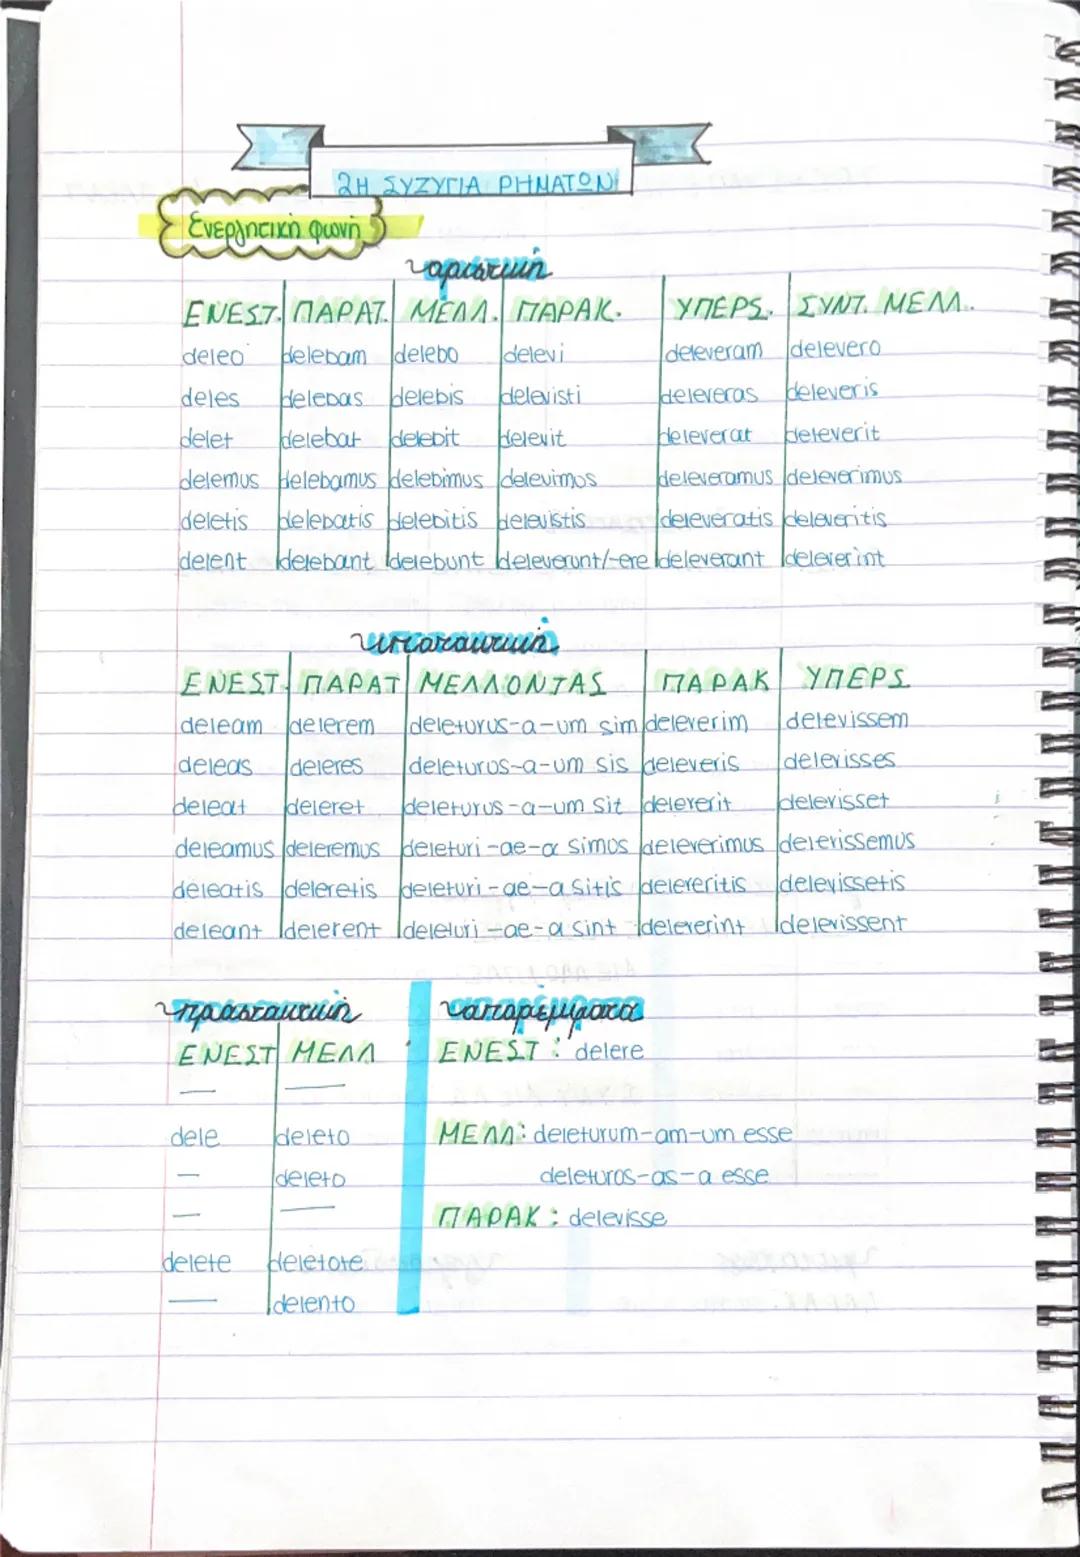 2Η ΣΥΖΥΓΙΑ ΡΗΜΑΤΩΝ
Ενεργητική φωνή
οριστική
ΕΝΕΣΤ. ΠΑΡΑΤ. ΜΕΛΛ. ΠΑΡΑΚ. ΥΠΕΡΣ. ΣΥΝΤ. ΜΕΛΛ.
deleo delebam delebo delevi deleveram delevero
deles delebas delebis delevisti deleveras deleveris
delet delebat delebit delevit deleverat deleverit
delemus delebamus delebimus delevimos deleveramus deleverimus
deletis delebatis delebitis delevistis deleveratis deleveritis
delent delebant delebunt deleverunt/-ere deleverant deleverint
υποτακτική
ΕΝΕΣΤ. ΠΑΡΑΤ ΜΕΛΛΟΝΤΑΣ ΠΑΡΑΚ ΥΠΕΡΣ
deleam delerem deleturus-a-um sim deleverim delevissem
deleas deleres deleturus-a-um sis deleveris delevisses
deleat deleret deleturus-a-um sit deleverit delevisset
deleamus deleremus deleturi-ae-a simos deleverimus delevissemus
deleatis deleretis deleturi-ae-a sitis delereritis delevissetis
deleant delerent deleturi-ae-a sint deleverint delevissent
προστακτική απαρέμφατα
ΕΝΕΣΤ ΜΕΛΛ ΕΝΕΣΤ: delere
— —
dele deleto ΜΕΛΛ: deleturum-am-um esse
— deleto deleturos-as-a esse
— — ΠΑΡΑΚ: delevisse
delete deletote
— delento